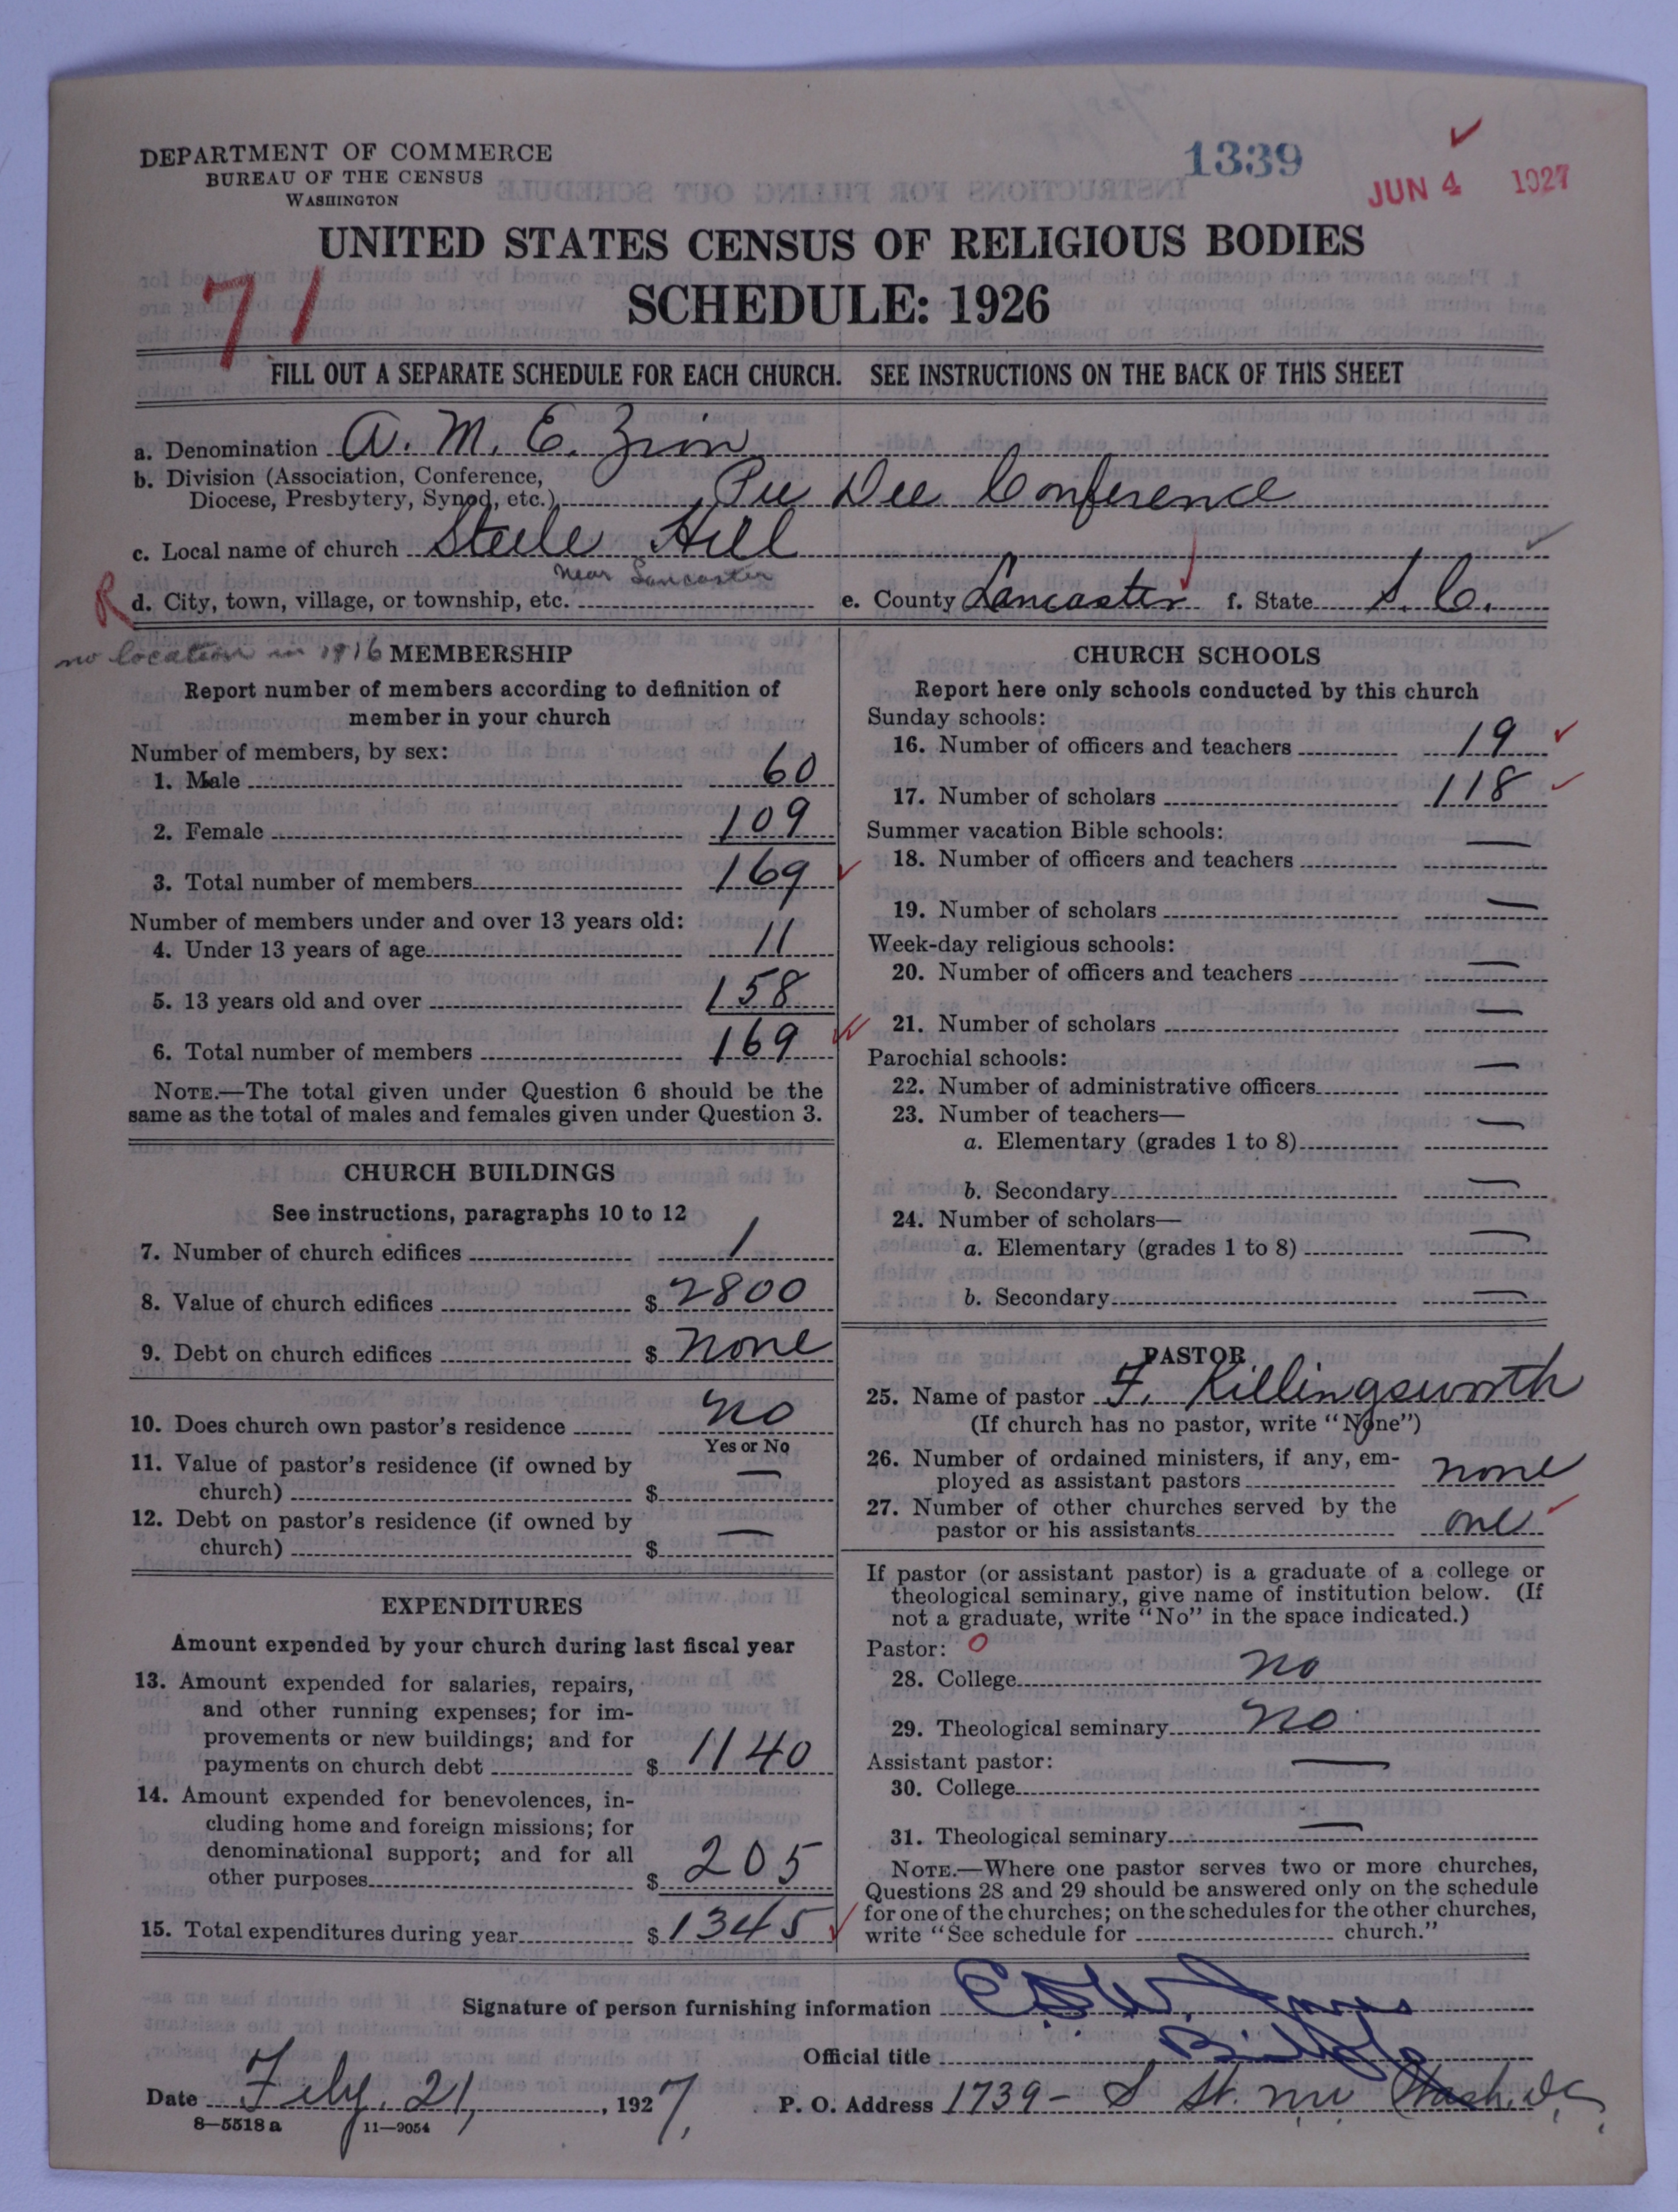 1339
JUN 4 1927
DEPARTMENT OF COMMERCE
BUREAU OF THE CENSUS
WASHINGTON
UNITED STATES CENSUS OF RELIGIOUS BODIES
SCHEDULE: 1926
71
FILL OUT A SEPARATE SCHEDULE FOR EACH CHURCH. SEE INSTRUCTIONS ON THE BACK OF THIS SHEET
a. Denomination A. M. E. Zion
b. Division (Association, Conference,
Diocese, Presbytery, Synod, etc.) Pee Dee Conference
c. Local name of church Steele Hill
near Lancaster
R d. City, town, village, or township, etc. e. County Lancaster f. State S. C.
no location in 1916
MEMBERSHIP
Report number of members according to definition of
member in your church
Number of members, by sex:
1. Male 60
2. Female 109
3. Total number of members 169
Number of members under and over 13 years old:
4. Under 13 years of age 11
5. 13 years old and over 158
6. Total number of members 169
NOTE.—The total given under Question 6 should be the
same as the total of males and females given under Question 3.
CHURCH BUILDINGS
See instructions, paragraphs 10 to 12
7. Number of church edifices 1
8. Value of church edifices $ 2800
9. Debt on church edifices $ none
10. Does church own pastor's residence no
Yes or No
11. Value of pastor's residence (if owned by
church) $ —
12. Debt on pastor's residence (if owned by
church) $ —
EXPENDITURES
Amount expended by your church during last fiscal year
13. Amount expended for salaries, repairs,
and other running expenses; for im-
provements or new buildings; and for
payments on church debt $ 1140
14. Amount expended for benevolences, in-
cluding home and foreign missions; for
denominational support; and for all
other purposes $ 205
15. Total expenditures during year $ 1345
CHURCH SCHOOLS
Report here only schools conducted by this church
Sunday schools:
16. Number of officers and teachers 19
17. Number of scholars 118
Summer vacation Bible schools:
18. Number of officers and teachers —
19. Number of scholars —
Week-day religious schools:
20. Number of officers and teachers —
21. Number of scholars —
Parochial schools:
22. Number of administrative officers —
23. Number of teachers—
a. Elementary (grades 1 to 8) —
b. Secondary —
24. Number of scholars—
a. Elementary (grades 1 to 8) —
b. Secondary —
PASTOR
25. Name of pastor F. Killingsworth
(If church has no pastor, write "None")
26. Number of ordained ministers, if any, em-
ployed as assistant pastors none
27. Number of other churches served by the
pastor or his assistants one
If pastor (or assistant pastor) is a graduate of a college or
theological seminary, give name of institution below. (If
not a graduate, write "No" in the space indicated.)
Pastor: 0
28. College no
29. Theological seminary no
Assistant pastor:
30. College —
31. Theological seminary —
NOTE.—Where one pastor serves two or more churches,
Questions 28 and 29 should be answered only on the schedule
for one of the churches; on the schedules for the other churches,
write "See schedule for church."
Signature of person furnishing information E. D. W. Jones
Official title Bishop
Date Feby. 21, 1927, P. O. Address 1739 - S St. N.W. Wash. D.C.
8—5518 a 11—9054